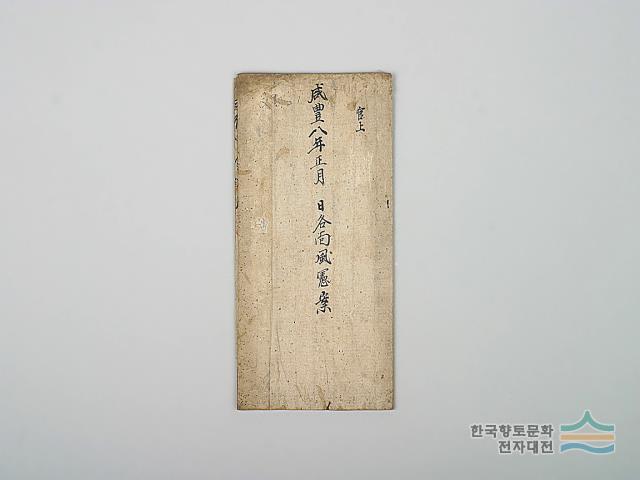 官上
咸豊八年正月 日各面風憲案
한국향토문화
전자대전